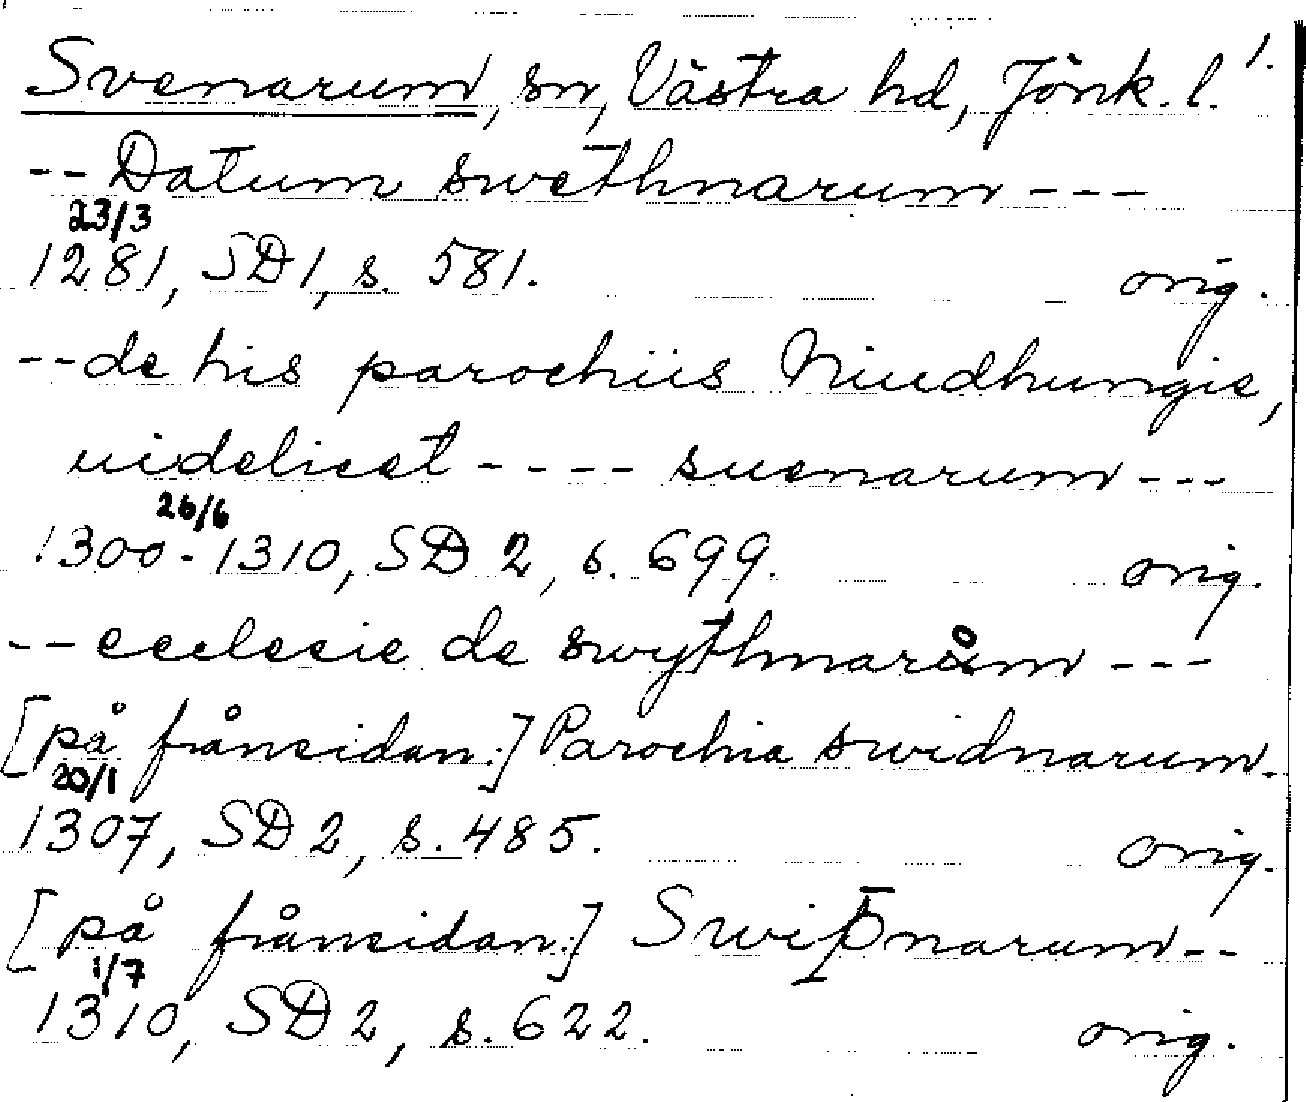 Svenarum, sn, Västra hd, Jönk. l. 1.
-- Datum swethnarum ---
23/3
1281, SD 1, s. 581. orig.
-- de his parochiis Niudhungie,
uidelicet ---- suenarum ---
26/6
1300-1310, SD 2, s. 699. orig.
-- ecclesie de swythnarům ---
[på frånsidan:] Parochia swidnarum.
20/1
1307, SD 2, s. 485. orig.
[på frånsidan:] Swiþnarum --
1/7
1310, SD 2, s. 622. orig.